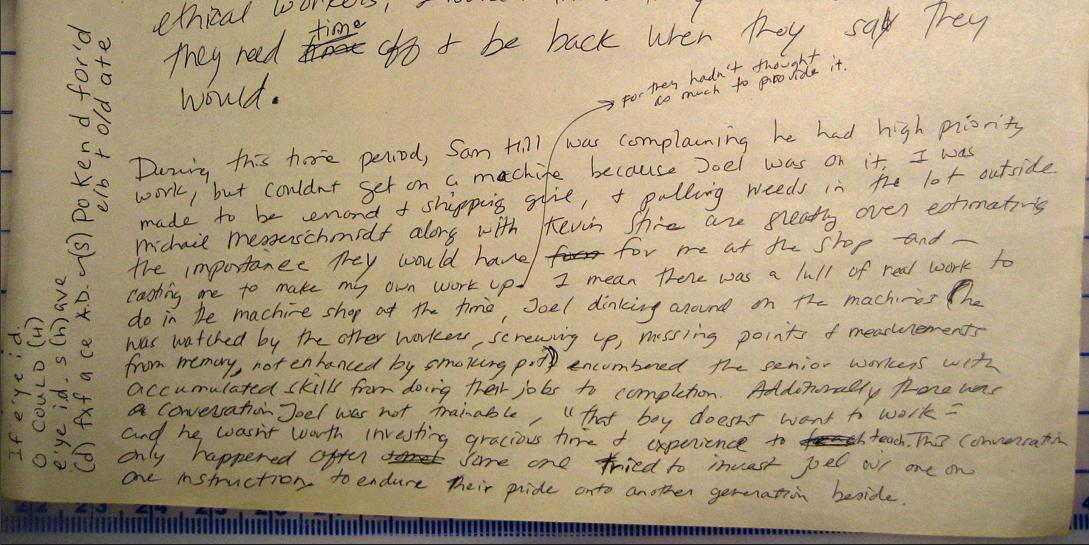 ethical workers,
they need time off & be back when they say they
would.
For they hadn't thought
so much to provide it.
During this time period, Sam Hill was complaining he had high priority
work, but couldnt get on a machine because Joel was on it. I was
made to be errand & shipping girl, & pulling weeds in the lot outside.
Michail Messerschmidt along with Kevin Stire are greatly over estimating
the importance they would have for me at the shop and –
casting me to make my own work up. I mean there was a lull of real work to
do in the machine shop at the time, Joel dinking around on the machines (he
was watched by the other workers, screwing up, missing points & measurements
from memory, not enhanced by smoking pot) encumbered the senior workers with
accumulated skills from doing their jobs to completion. Additionally there was
a conversation Joel was not trainable, "that boy doesnt want to work =
and he wasnt worth investing gracious time & experience to teach. This conversation
only happened after some one tried to invest Joel w/ one on
one instruction, to endure their pride onto another generation beside.
If e'ye id.
O COULD (H)
e'ye id. s(h)ave
(d) fxf a ce A.D. (s) Po Ken d for'd
e/b t o/d ate
22 23 24